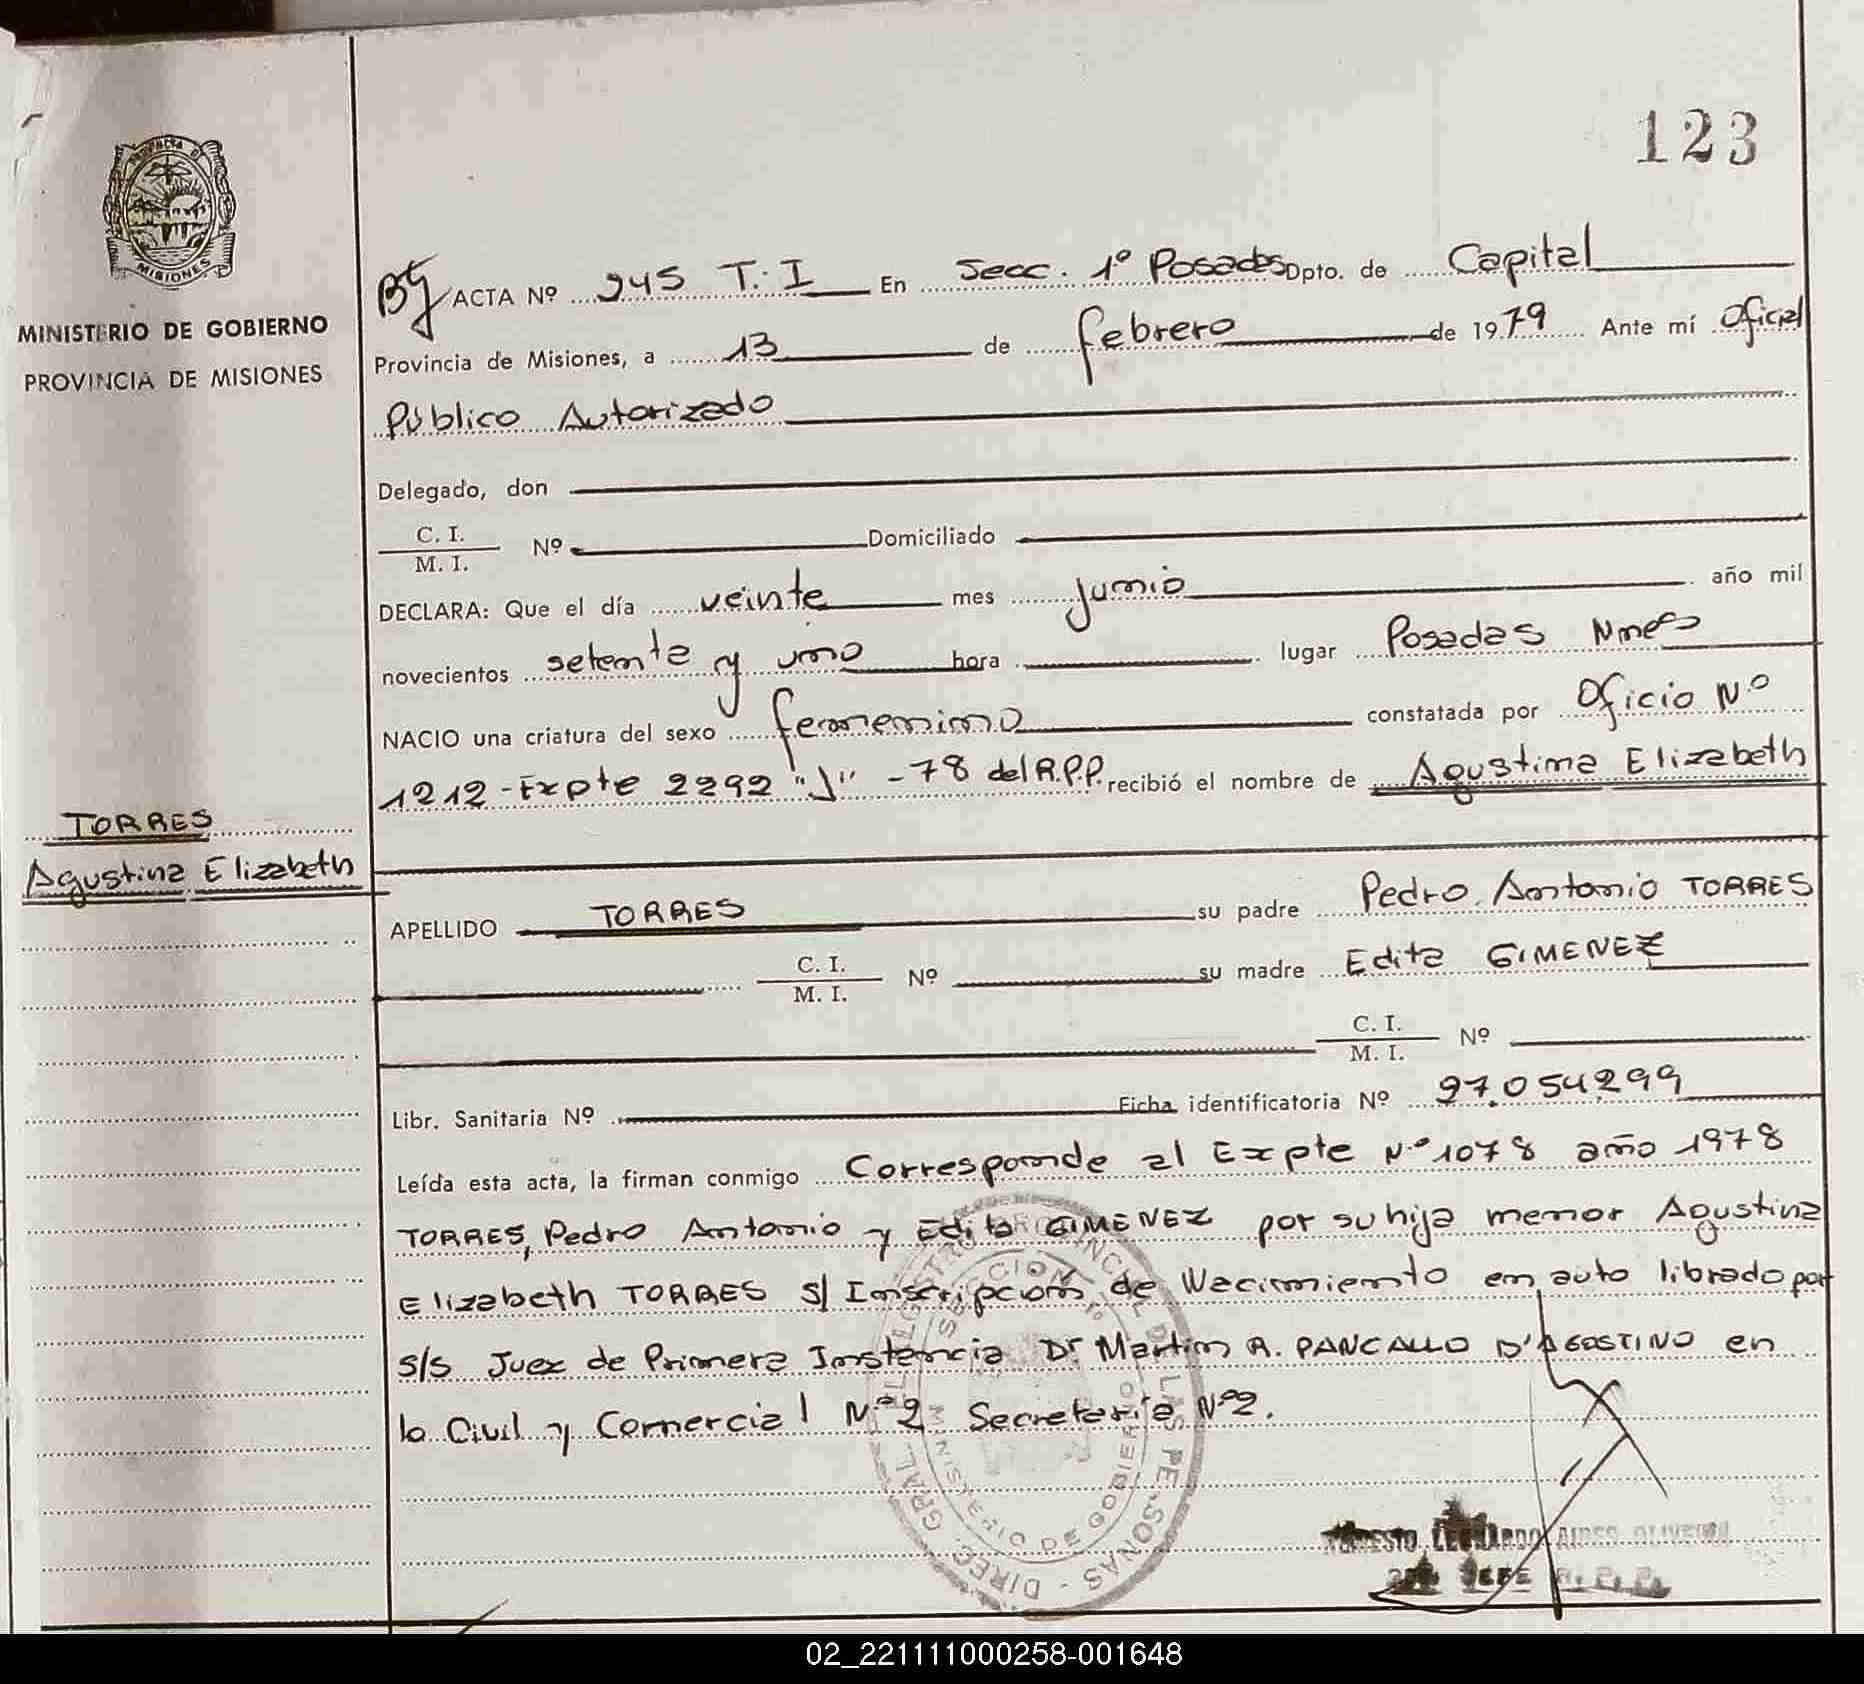 123
PROVINCIA DE
MISIONES
MINISTERIO DE GOBIERNO
PROVINCIA DE MISIONES
ACTA Nº 245 T. I En Secc. 1º Posadas Dpto. de Capital
Provincia de Misiones, a 13 de febrero de 1979 Ante mí Oficial
Público Autorizado
Delegado, don
C. I.
M. I. Nº Domiciliado
DECLARA: Que el día veinte mes junio año mil
novecientos setenta y uno hora lugar Posadas Mnes
NACIO una criatura del sexo femenino constatada por Oficio Nº
1212-Expte 2292 "J" -78 del R.P.P. recibió el nombre de Agustina Elizabeth
TORRES
Agustina Elizabeth
APELLIDO TORRES su padre Pedro Antonio TORRES
C. I.
M. I. Nº su madre Edita GIMENEZ
C. I.
M. I. Nº
Libr. Sanitaria Nº Ficha identificatoria Nº 27.054299
Leída esta acta, la firman conmigo Corresponde al Expte Nº 1078 año 1978
TORRES, Pedro Antonio y Edita GIMENEZ por su hija menor Agustina
Elizabeth TORRES s/ Inscripcion de Nacimiento en auto librado por
S/S Juez de Primera Instancia Dr Martin R. PANCALLO D'AGOSTINO en
lo Civil y Comercial Nº 2 Secretaria Nº 2.
SECCION 1º
MINISTERIO DE GOBIERNO
DIREC. GRAL. DEL REGISTRO PROVINCIAL DE LAS PERSONAS
LEONARDO AIRES OLIVEIRA
JEFE R. P. P.
02_221111000258-001648